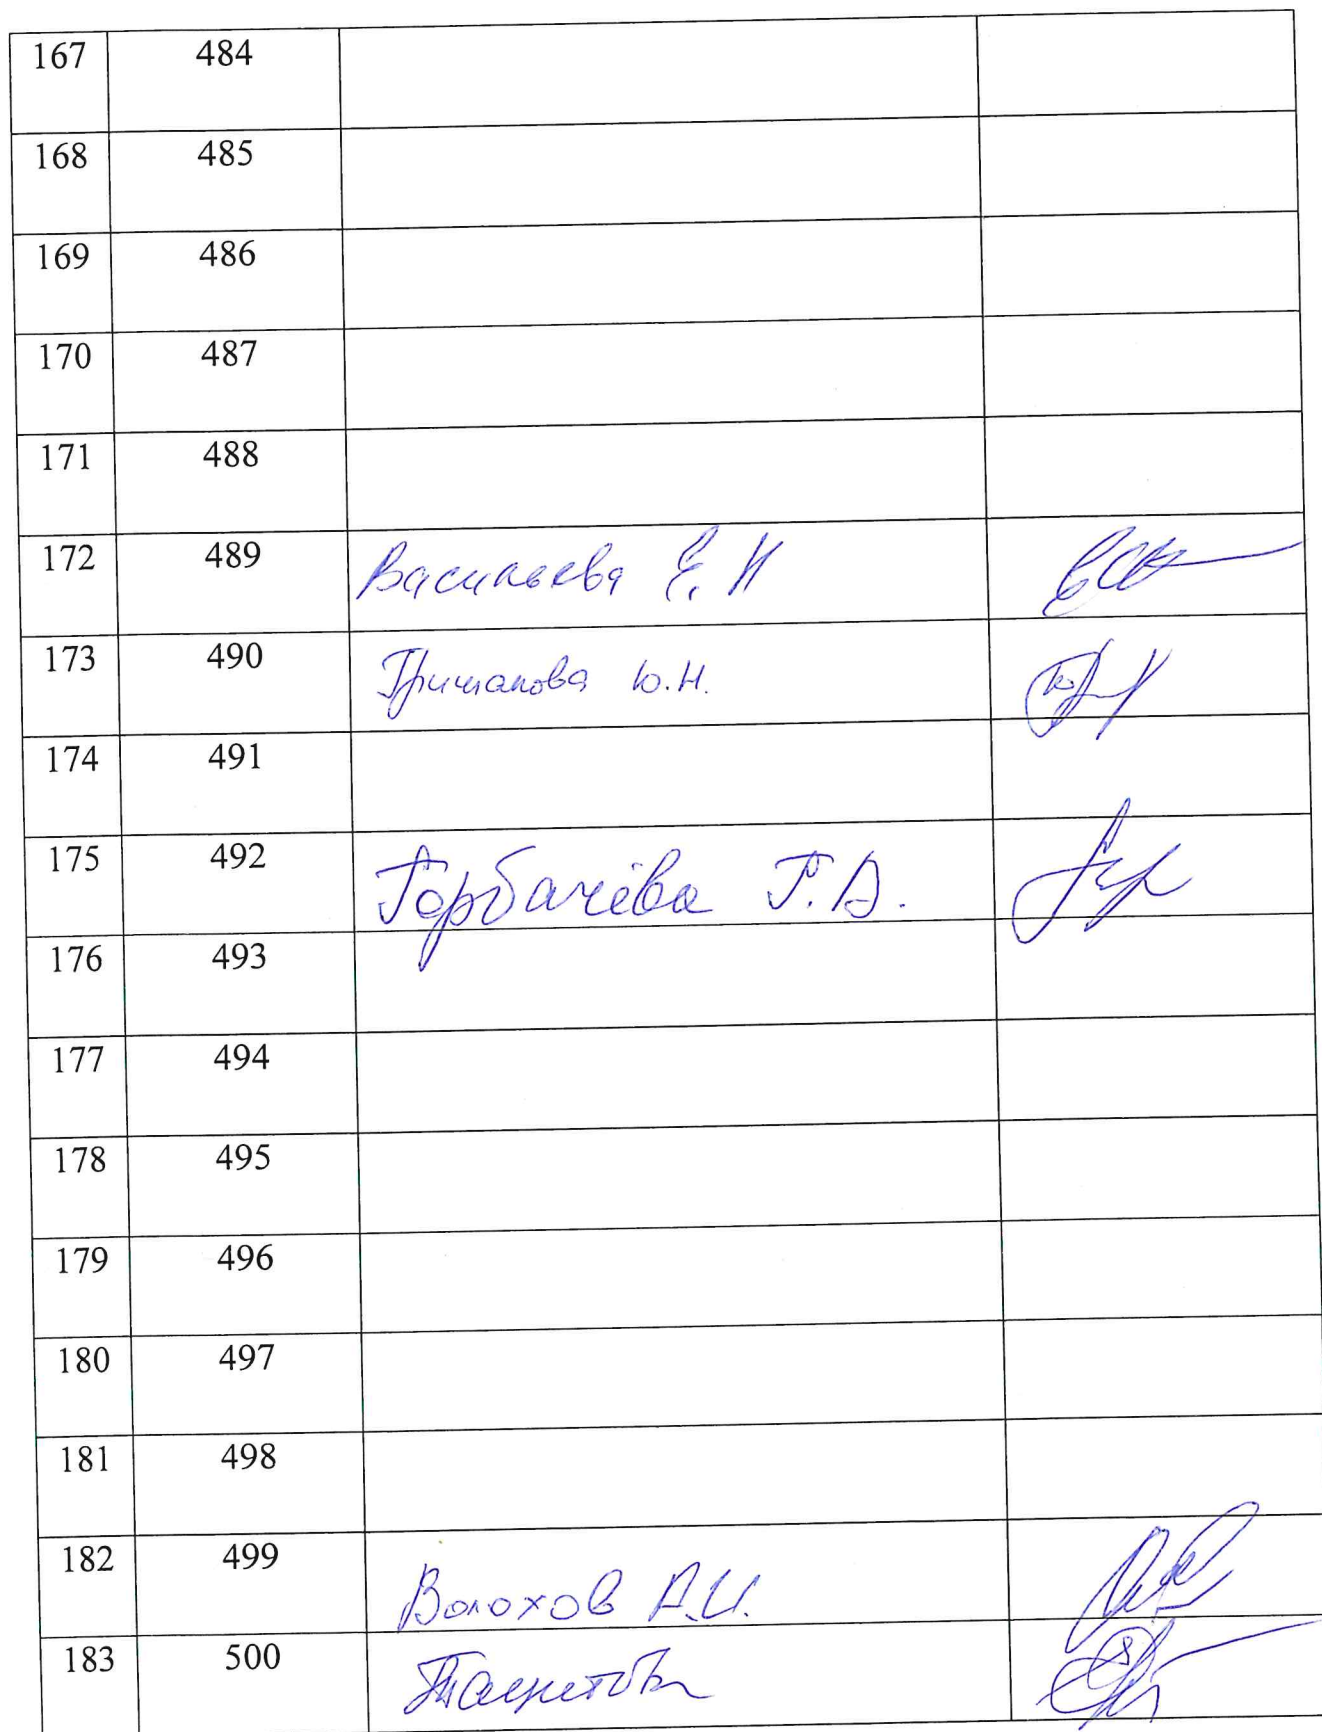 167 484
168 485
169 486
170 487
171 488
172 489 Васильева Е. Н
173 490 Гришанова Ю.Н.
174 491
175 492 Горбачёва Г. В.
176 493
177 494
178 495
179 496
180 497
181 498
182 499 Волохов А.И.
183 500